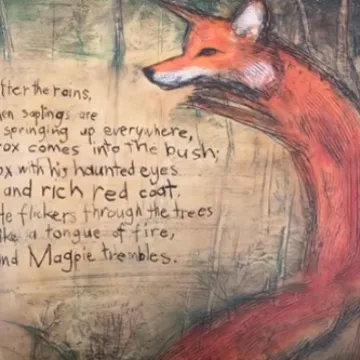 fter the rains,
hen saplings are
springing up everywhere,
Fox comes into the bush;
ox with his haunted eyes
and rich red coat.
He flickers through the trees
ike a tongue of fire,
nd Magpie trembles.